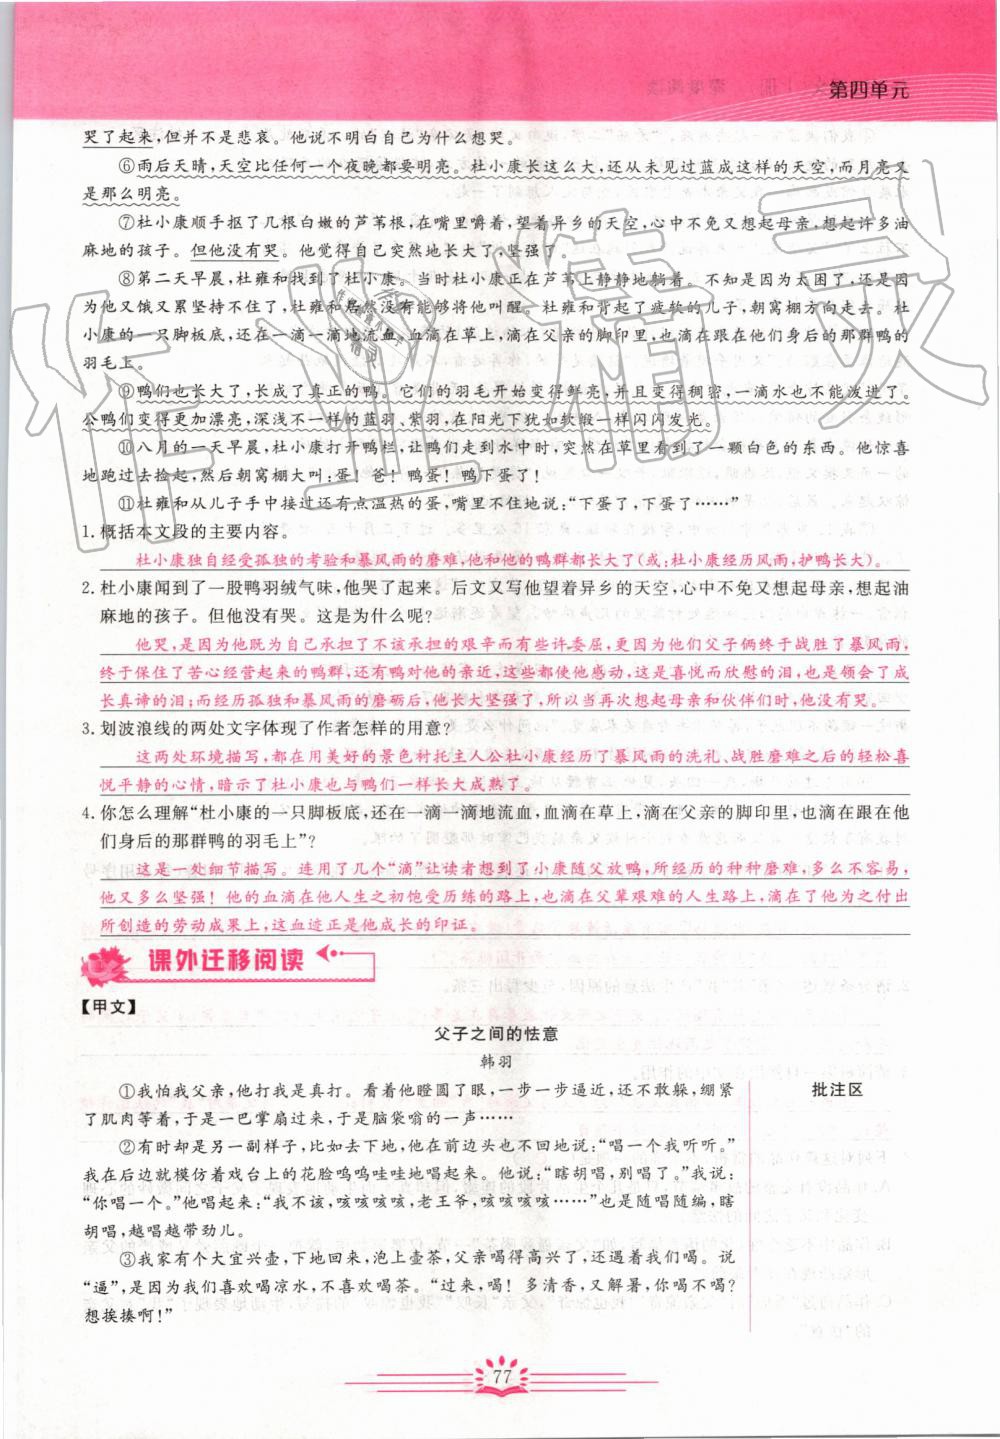 第四单元
哭了起来,但并不是悲哀。他说不明白自己为什么想哭。
⑥雨后天晴,天空比任何一个夜晚都要明亮。杜小康长这么大,还从未见过蓝成这样的天空,而月亮又
是那么明亮。
⑦杜小康顺手抠了几根白嫩的芦苇根,在嘴里嚼着,望着异乡的天空,心中不免又想起母亲,想起许多油
麻地的孩子。但他没有哭。他觉得自己突然地长大了,坚强了
⑧第二天早晨,杜雍和找到了杜小康。当时杜小康正在芦苇上静静地躺着。不知是因为太困了,还是因
为他又饿又累坚持不住了,杜雍和居然没有能够将他叫醒。杜雍和背起了疲软的儿子,朝窝棚方向走去。杜
小康的一只脚板底,还在一滴一滴地流血,血滴在草上,滴在父亲的脚印里,也滴在跟在他们身后的那群鸭的
羽毛上。
⑨鸭们也长大了,长成了真正的鸭。它们的羽毛开始变得鲜亮,并且变得稠密,一滴水也不能泼进了。
公鸭们变得更加漂亮,深浅不一样的蓝羽、紫羽,在阳光下犹如软缎一样闪闪发光。
⑩八月的一天早晨,杜小康打开鸭栏,让鸭们走到水中时,突然在草里看到了一颗白色的东西。他惊喜
地跑过去捡起,然后朝窝棚大叫:蛋!爸!鸭蛋!鸭下蛋了!
⑪杜雍和从儿子手中接过还有点温热的蛋,嘴里不住地说:“下蛋了,下蛋了……”
1. 概括本文段的主要内容。
杜小康独自经受孤独的考验和暴风雨的磨难,他和他的鸭群都长大了(或:杜小康经历风雨,护鸭长大)。
2. 杜小康闻到了一股鸭羽绒气味,他哭了起来。后文又写他望着异乡的天空,心中不免又想起母亲,想起油
麻地的孩子。但他没有哭。这是为什么呢?
他哭,是因为他既为自己承担了不该承担的艰辛而有些许委屈,更因为他们父子俩终于战胜了暴风雨,
终于保住了苦心经营起来的鸭群,还有鸭对他的亲近,这些都使他感动,这是喜悦而欣慰的泪,也是领会了成
长真谛的泪;而经历孤独和暴风雨的磨砺后,他长大坚强了,所以当再次想起母亲和伙伴们时,他没有哭。
3. 划波浪线的两处文字体现了作者怎样的用意?
这两处环境描写,都在用美好的景色衬托主人公杜小康经历了暴风雨的洗礼、战胜磨难之后的轻松喜
悦平静的心情,暗示了杜小康也与鸭们一样长大成熟了。
4. 你怎么理解“杜小康的一只脚板底,还在一滴一滴地流血,血滴在草上,滴在父亲的脚印里,也滴在跟在他
们身后的那群鸭的羽毛上”?
这是一处细节描写。连用了几个“滴”让读者想到了小康随父放鸭,所经历的种种磨难,多么不容易,
他又多么坚强!他的血滴在他人生之初饱受历练的路上,也滴在父辈艰难的人生路上,滴在了他为之付出
所创造的劳动成果上,这血迹正是他成长的印证。
课外迁移阅读
【甲文】
父子之间的怯意
韩羽
①我怕我父亲,他打我是真打。看着他瞪圆了眼,一步一步逼近,还不敢躲,绷紧
了肌肉等着,于是一巴掌扇过来,于是脑袋嗡的一声……
批注区
②有时却是另一副样子,比如去下地,他在前边头也不回地说:“唱一个我听听。”
我在后边就模仿着戏台上的花脸呜呜哇哇地唱起来。他说:“瞎胡唱。”我说:
“你唱一个。”他唱起来:“我不该,咳咳咳咳,老王爷,咳咳咳咳……”也是随唱随编,瞎
胡唱,越唱越带劲儿。
③我家有个大宜兴壶,下地回来,泡上壶茶,父亲喝得高兴了,还逼着我们喝。说
“逼”,是因为我们喜欢喝凉水,不喜欢喝茶。“过来,喝!多清香,又解暑,你喝不喝?
想挨揍啊!”
77